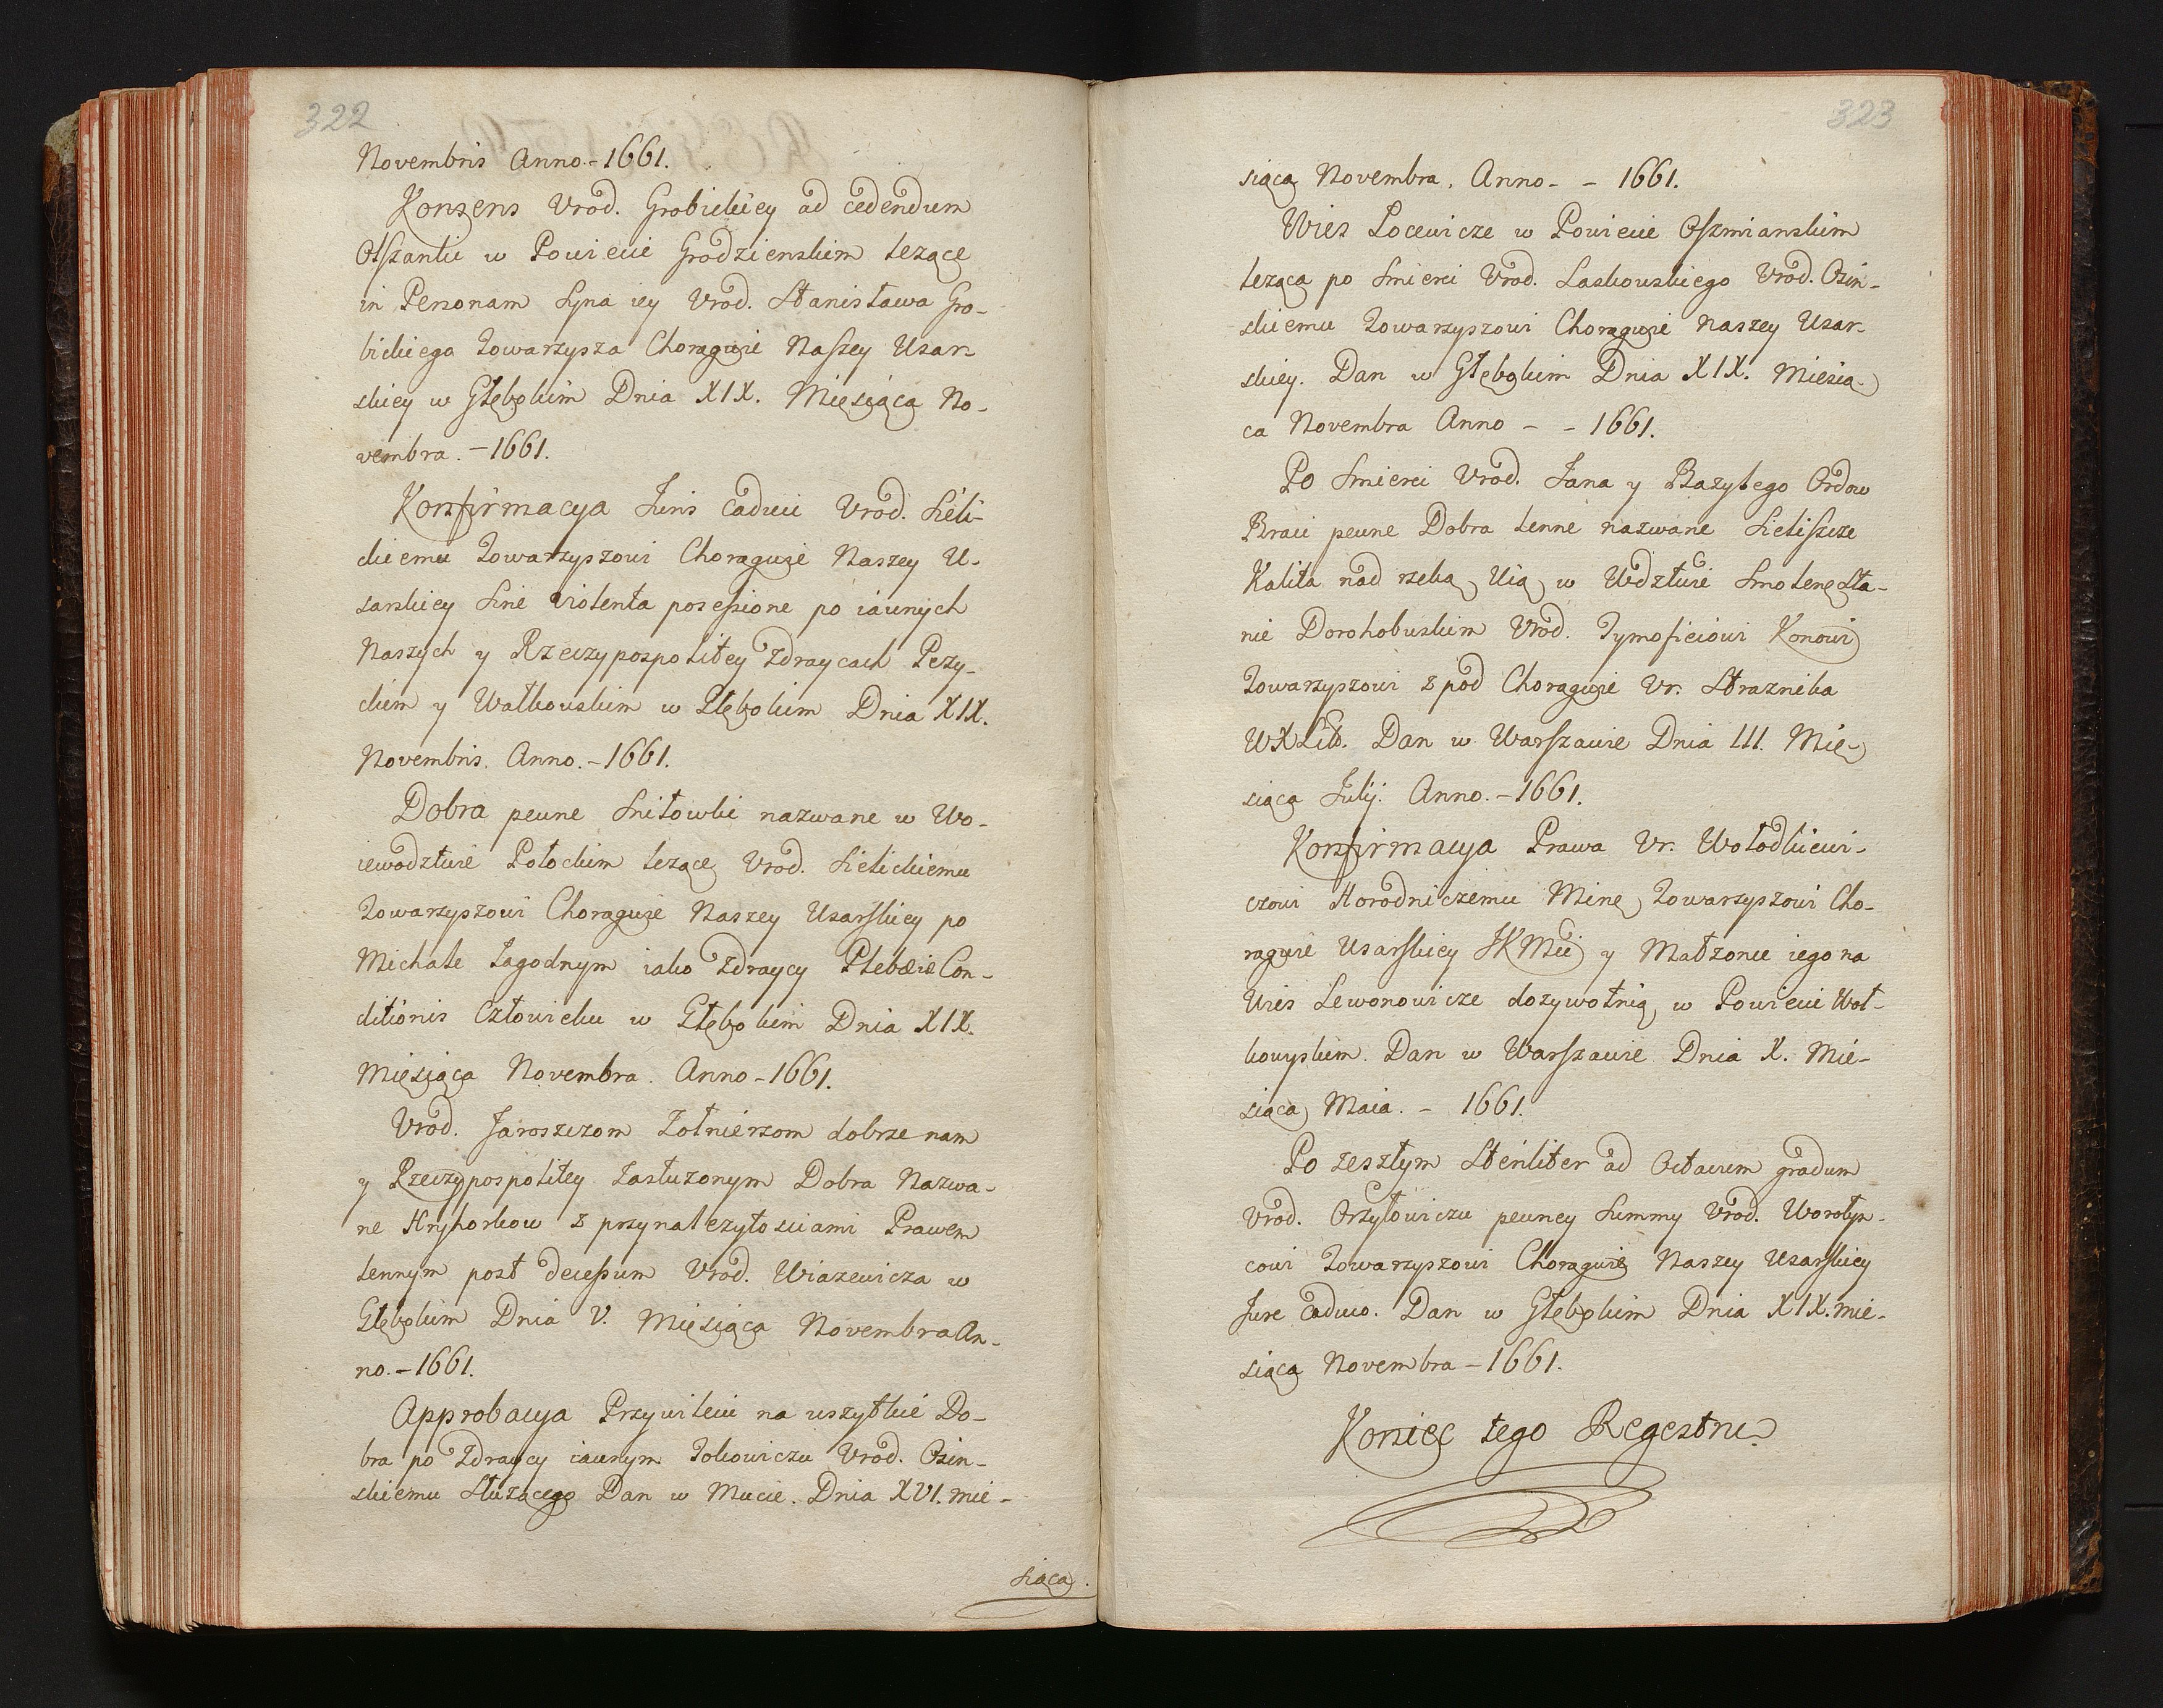 322
Novembris Anno.-1661.
Konsens Vrod. Grobickiey ad cedendum
Olszanki w Powiecie Grodzienskim lezące
in Personam Syna iey Vrod. Stanisława Gro-
bickiego Towarzysza Chorągwie Naszey Usar-
skiey w Głębokim Dnia XIX. Miesiąca No-
vembra.-1661.
Konfirmacya Juris Caduci Vrod. Sieli-
ckiemu Towarzyszowi Chorągwie Naszey U-
sarskiey Sine violenta posessione po iawnych
Naszych y Rzeczypospolitey Zdraycach Pezy-
ckim y Wałkouskim w Głębokim Dnia XIX.
Novembris. Anno.-1661.
Dobra pewne Snitowki nazwane w Wo-
iewodztwie Połockim lezące Vrod. Sielickiemu
Towarzyszowi Chorągwie Naszey Usarskiey po
Michale Łagodnym iako Zdraycy Plebeie Con-
ditionis Człowieku w Głębokim Dnia XIX.
Miesiąca Novembra. Anno-1661.
Vrod. Jaroszczom Zołnierzom dobrze nam
y Rzeczypospolitey Zasłuzonym Dobra Nazwa-
ne Hryhorkow z przynalezytosciami Prawem
lennym post decessum Vrod. Wiazewicza w
Głębokim Dnia V. Miesiąca Novembra An-
no.-1661.
Approbacya Przywileiu na wszytkie Do-
bra po Zdraycy iawnym Tokowiczu Vrod. Osin-
skiemu Słuzącego Dan w Mucie. Dnia XVI. mie-
siąca.
323
siąca Novembra. Anno - - 1661.
Wies Locewicze w Powiecie Oszmianskim
leząca po Smierci Vrod. Laskouskiego Vrod. Osin-
skiemu Towarzyszowi Chorągwie Naszey Usar-
skiey. Dan w Głębokim Dnia XIX. Miesią-
ca Novembra Anno - - 1661.
Po Smierci Vrod. Jana y Bazylego Ordow
Braci pewne Dobra lenne nazwane Sieliszcze
Kalita nad rzeką Uią w Wdztwie Smolenę Sta-
nie Dorohobuskim Vrod. Tymoficiowi Konowi
Towarzyszowi z pod Chorągwie Vr. Straznika
WXLitt. Dan w Warszawie Dnia III. Mie-
siąca Julij. Anno.-1661.
Konfirmacya Prawa Vr. Wołodkiewi-
czowi Horodniczemu Minę Towarzyszowi Cho-
rągwie Usarskiey JKMci y Małzonce iego na
Wies Lewonowicze dozywotnią w Powiecie Woł-
kouyskim. Dan w Warszawie Dnia X. Mie-
siąca Maia. - 1661.
Po zeszłym Steriliter ad Octavum gradum
Vrod. Orzyłowiczu pewney Summy Vrod. Worotyn-
cowi Towarzyszowi Chorągwie Naszey Usarskiey
Jure Caduco. Dan w Głębokim Dnia XIX. mie-
siąca Novembra-1661.
Koniec tego Regestru.